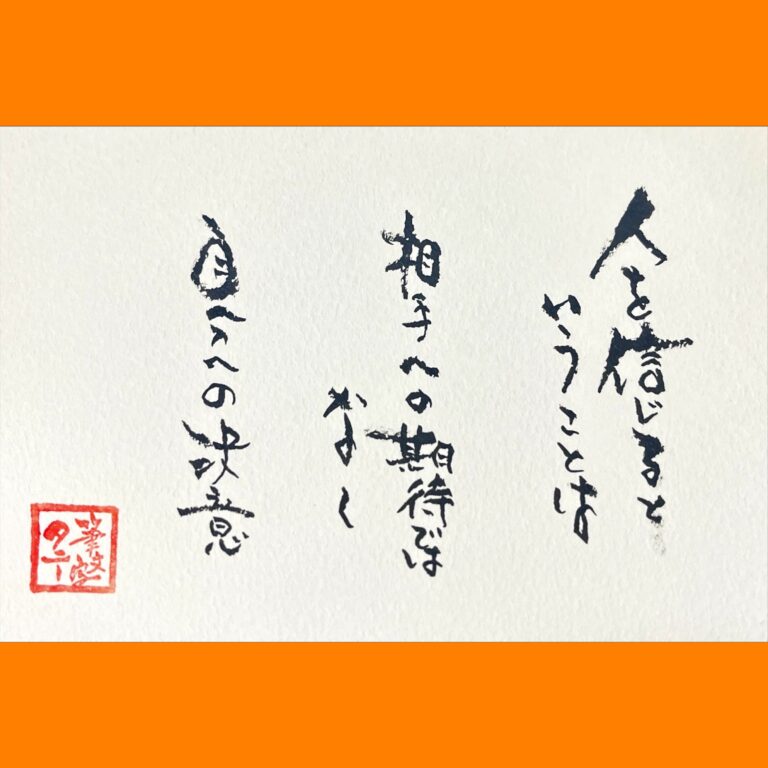 人を信じると
いうことは
相手への期待では
なく
自分への決意